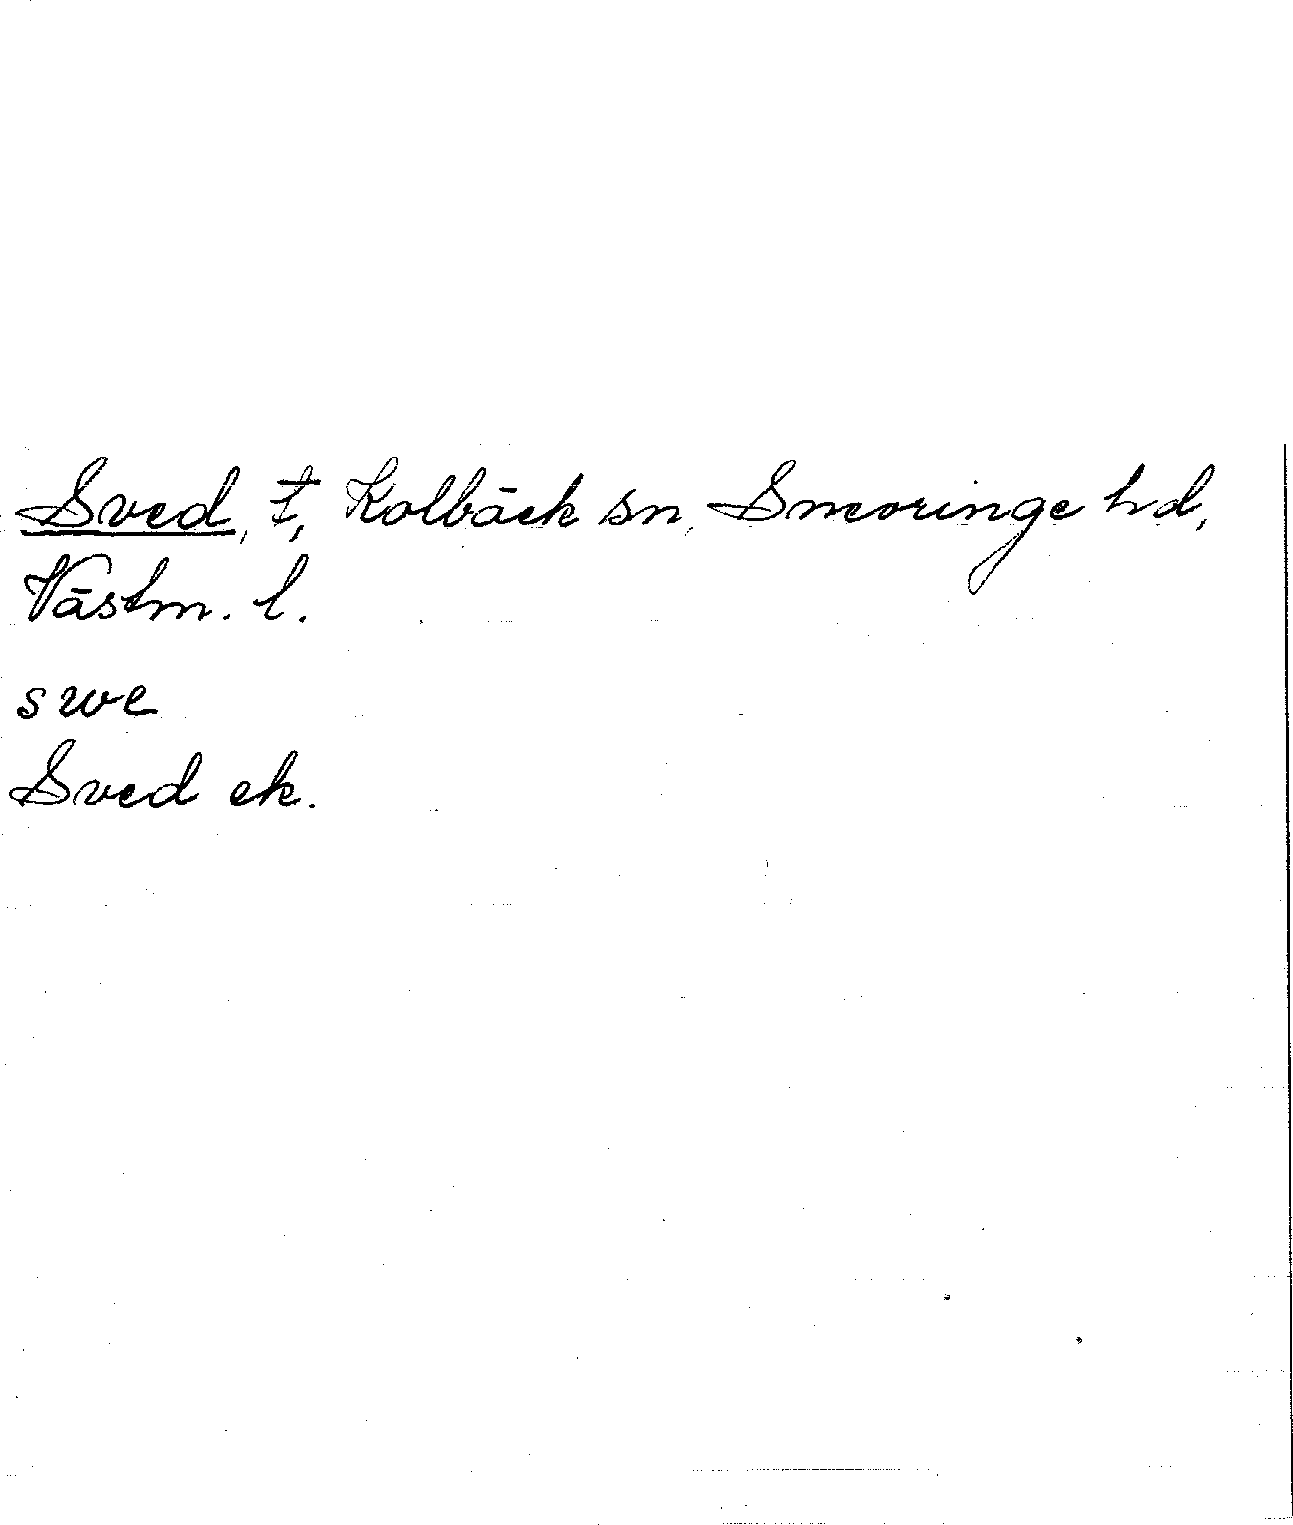 Sved, t, Kolbäck sn, Snevringe hd,
Västm. l.
swe
Sved ek.